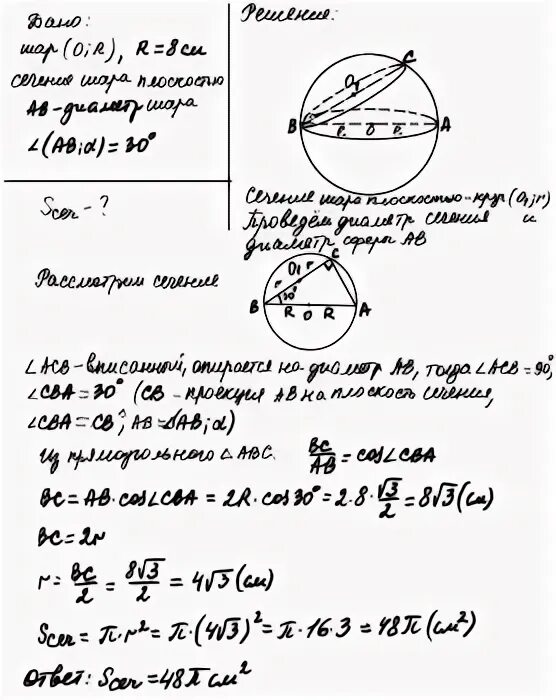 Дано:
шар (O; R), R = 8 см
сечение шара плоскостью
AB - диаметр шара
∠(AB; α) = 30°
Sсеч - ?
Решение:
C
O₁
B
R O R
A
Сечение шара плоскостью - круг (O₁; r)
Проведём диаметр сечения и
диаметр сферы AB
Рассмотрим сечение
C
r O₁ r
30°
B
R O R
A
∠ACB - вписанный, опирается на диаметр AB, тогда ∠ACB = 90°,
∠CBA = 30° (CB - проекция AB на плоскость сечения,
∠CBA = CB^; AB = ∠AB; α)
Из прямоугольного △ABC. BC/AB = cos∠CBA
BC = AB · cos∠CBA = 2R · cos30° = 2 · 8 · √3/2 = 8√3 (см)
BC = 2r
r = BC/2 = 8√3/2 = 4√3 (см)
Sсеч = π · r² = π · (4√3)² = π · 16 · 3 = 48π (см²)
Ответ: Sсеч = 48π см²